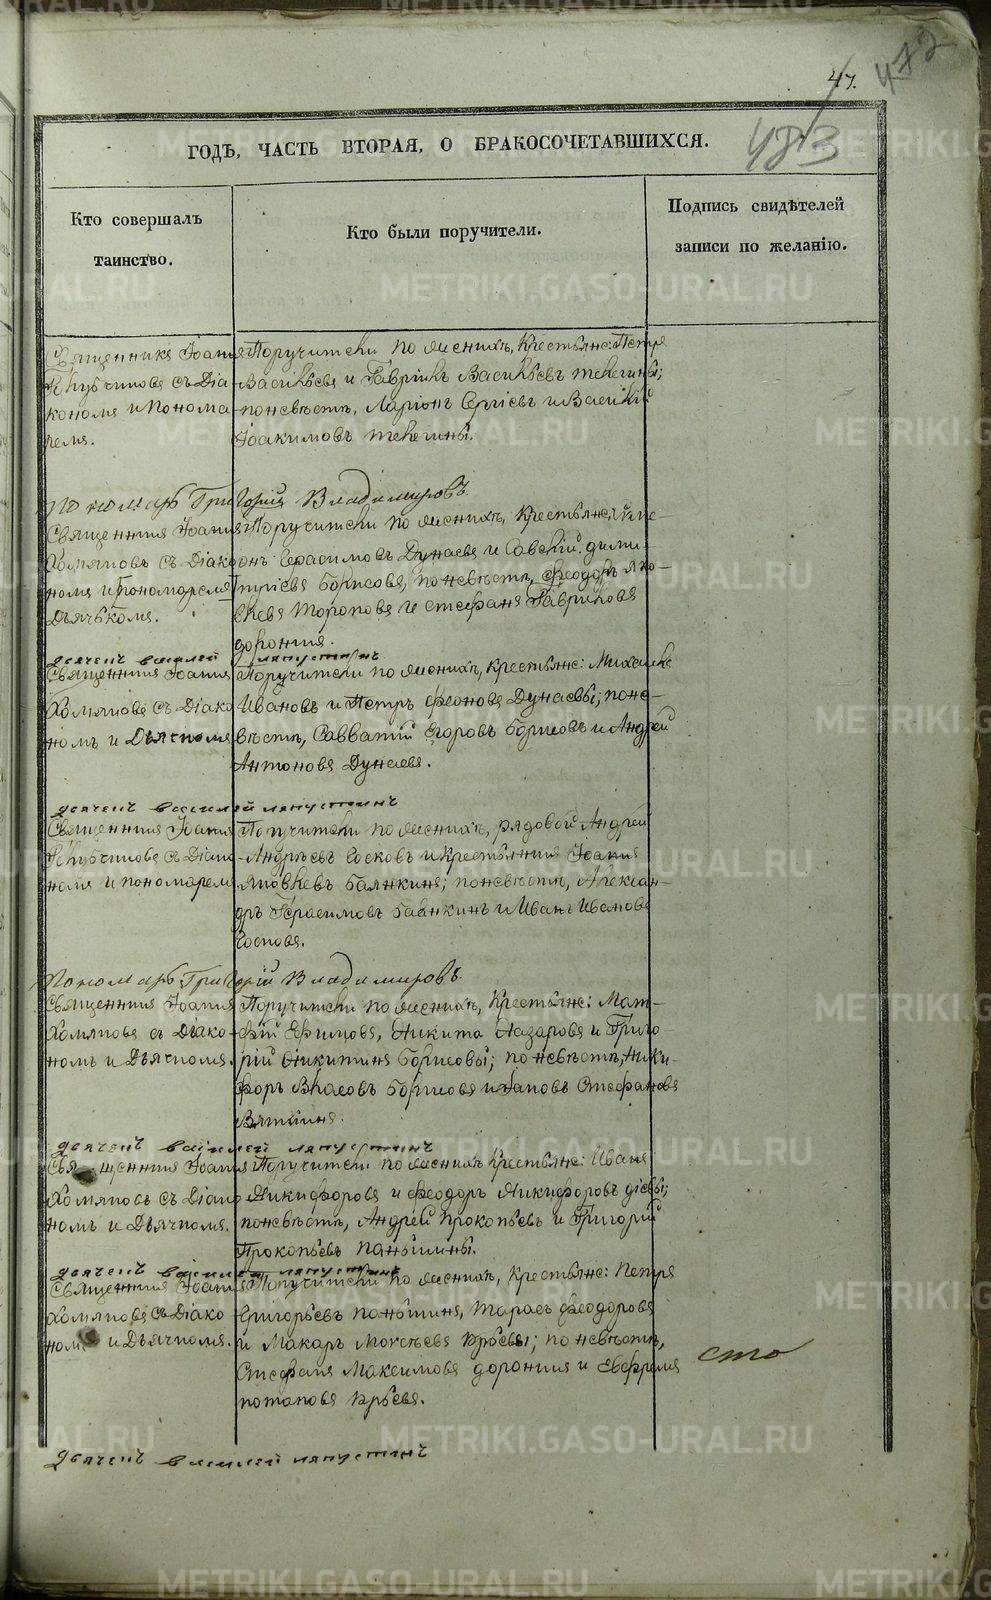 47.
472
483
ГОДѢ, ЧАСТЬ ВТОРАЯ, О БРАКОСОЧЕТАВШИХСЯ.
Кто совершалъ
таинство.
Кто были поручители.
Подпись свидѣтелей
записи по желанію.
Священникъ Іоаннъ
съ Діа-
кономъ и Понома-
ремъ.
Поручители по женихѣ, Крестьяне: Петръ
Васильевъ и Гаврiилъ Васильевъ
по невѣстѣ, Ларіонъ Сергіевъ и Василій
Іоакимовъ
Пономарь Григорій Владимировъ
Священникъ Іоаннъ
Хомяковъ съ Діако-
номъ и Пономаремъ
Дьячькомъ.
Поручители по женихѣ, Крестьяне:
Герасимовъ Дунаевъ и Дими-
тріевъ Борисовъ, по невѣстѣ, Феодоръ Яко-
влевъ Тороповъ и Стефанъ Гавриловъ
Доронинъ.
Дьячекъ Василей Ляпустинъ
Священникъ Іоаннъ
Хомяковъ съ Діако-
номъ и Дьячкомъ
Поручители по женихѣ, Крестьяне: Михаилъ
Ивановъ и Петръ Дунаевы; по не-
вѣстѣ, Савватій Егоровъ Борисовъ и Андрей
Антоновъ Дунаевъ.
Дьячекъ Василей Ляпустинъ
Священникъ Іоаннъ
съ Діако-
номъ и пономаремъ
Поручители по женихѣ, рядовой Андрей
Андреевъ и крестьянинъ Іоаннъ
Яковлевъ по невѣстѣ, Алексан-
дръ Герасимовъ и Иванъ Ивановъ
Пономарь Григорій Владимировъ
Священникъ Іоаннъ
Хомяковъ съ Діако-
номъ и Дьячкомъ.
Поручители по женихѣ, Крестьяне: Мат-
фій Ефимовъ, Никита Назаровъ и Григо-
рій Никитинъ Борисовы; по невѣстѣ, Ники-
форъ Власовъ Борисовъ и Стефановъ
Вяткинъ.
Дьячекъ Василей Ляпустинъ
Священникъ Іоаннъ
Хомяковъ съ Діако-
номъ и Дьячкомъ.
Поручители по женихѣ, Крестьяне: Иванъ
Никифоровъ и Феодоръ Никифоровъ
по невѣстѣ, Андрей Прокопьевъ и Григорій
Прокопьевъ Паньшины.
Дьячекъ Василей Ляпустинъ
Священникъ Іоаннъ
Хомяковъ съ Діако-
номъ и Дьячкомъ.
Поручители по женихѣ, Крестьяне: Петръ
Григорьевъ Паньшинъ, Тарасъ Феодоровъ
и Макаръ по невѣстѣ,
Стефанъ Максимовъ Доронинъ и Ефремъ
Потаповъ
сто
Дьячекъ Василей Ляпустинъ
METRIKI.GASO-URAL.RU